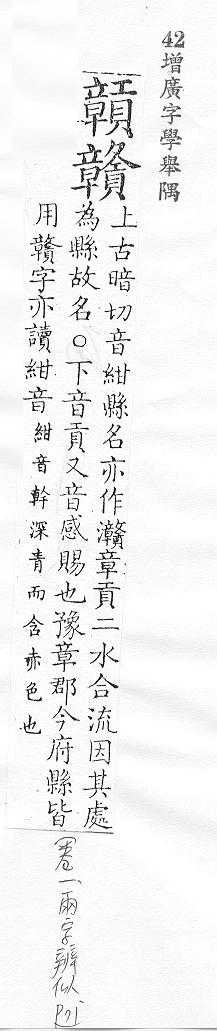 42增廣字學舉隅
贑贛
上古暗切音紺縣名亦作灨章貢二水合流因其處
為縣故名○下音貢又音感賜也豫章郡今府縣皆
用贛字亦讀紺音紺音幹深青而含赤色也
卷一兩字辨似P21